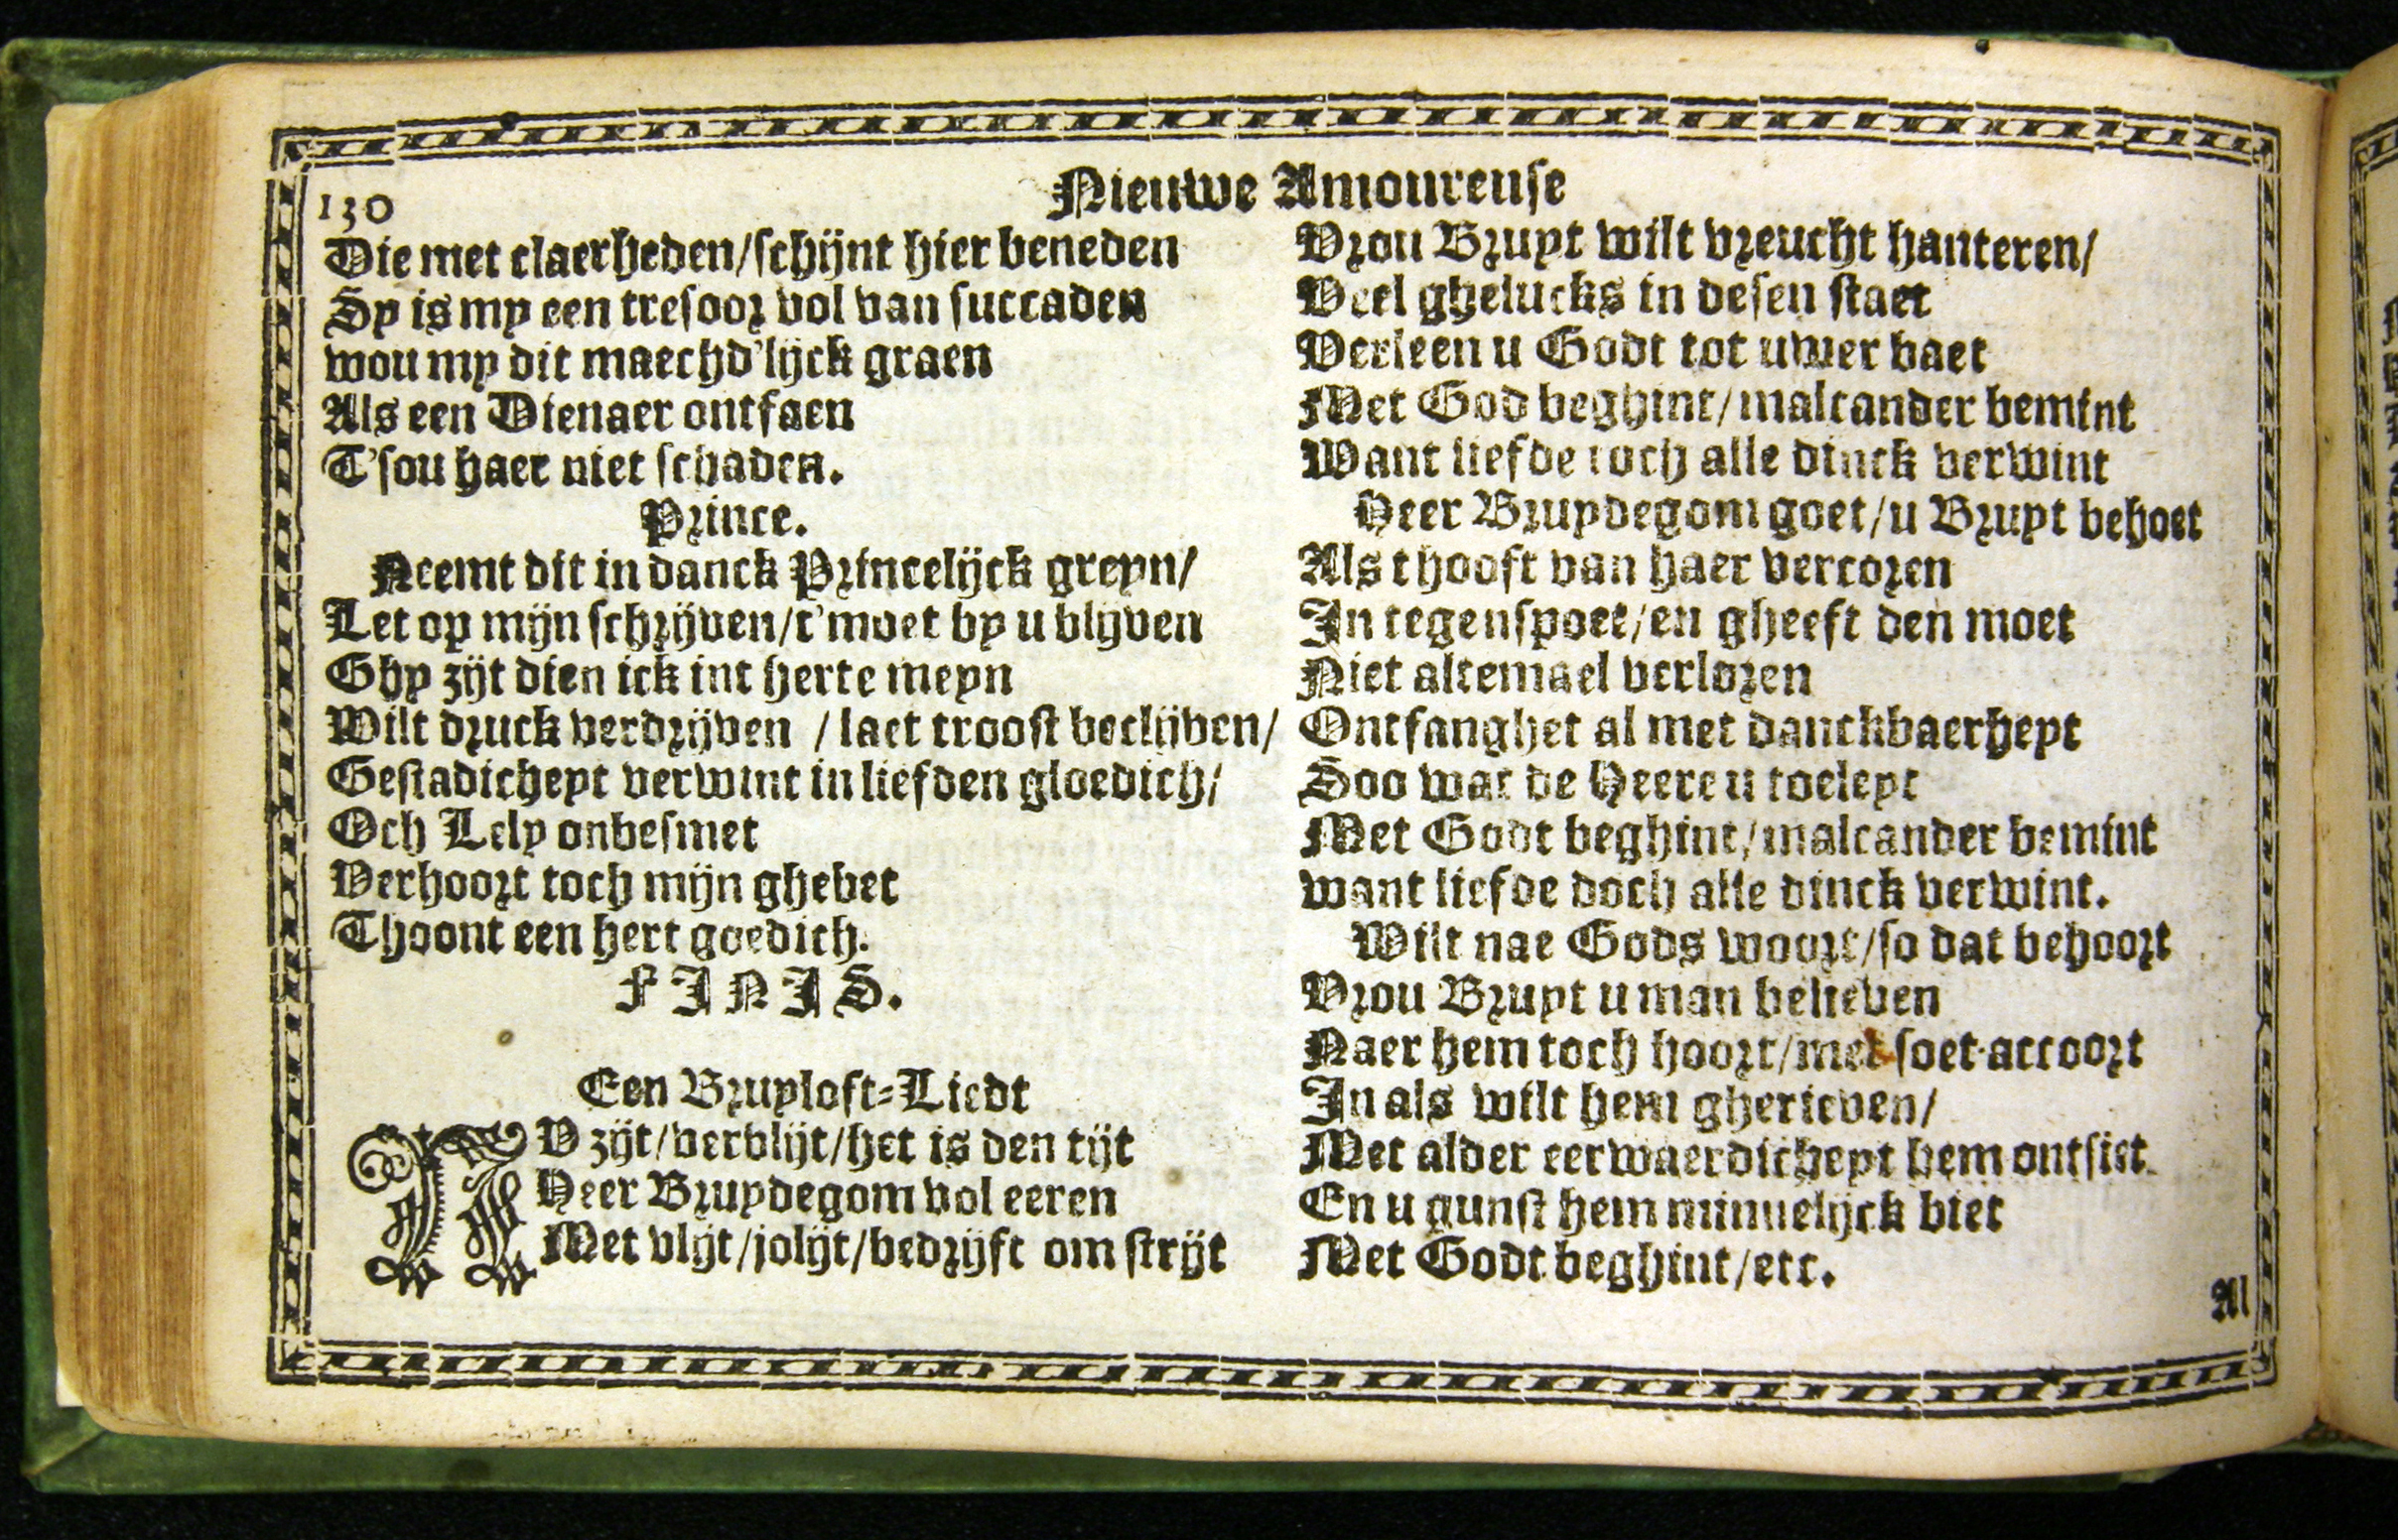 130
Nieuwe Amoureuse
Die met claerheden/schijnt hier beneden
Sy is my een tresoor vol van succaden
wou my dit maechd'lijck graen
Als een Dienaer ontfaen
T'sou haer niet schaden.
Prince.
Neemt dit in danck Princelijck greyn/
Let op mijn schrijven/t'moet by u blijven
Ghy zijt dien ick int herte meyn
Wilt druck verdrijven / laet troost beclijven/
Gestadicheyt verwint in liefden gloedich/
Och Lely onbesmet
Verhoort toch mijn ghebet
Thoont een hert goedich.
FINIS.
Een Bruyloft-Liedt
NV zijt/verblijt/het is den tijt
Heer Bruydegom vol eeren
Met vlijt/jolijt/bedrijft om strijt
Vrou Bruyt wilt vreucht hanteren/
Veel ghelucks in desen staet
Verleen u Godt tot uwer baet
Met God beghint/malcander bemint
Want liefde toch alle dinck verwint
Heer Bruydegom goet/u Bruyt behoet
Als thooft van haer vercoren
In tegenspoet/en gheeft den moet
Niet altemael verloren
Ontfanghet al met danckbaerheyt
Soo wat de Heere u toeleyt
Met Godt beghint/malcander bemint
want liefde doch alle dinck verwint.
Wilt nae Gods woort/so dat behoort
Vrou Bruyt u man believen
Naer hem toch hoort/met soet accoort
In als wilt hem gherieven/
Met alder eerwaerdicheyt hem ontsiet
En u gunst hem minnelijck biet
Met Godt beghint/etc.
Al